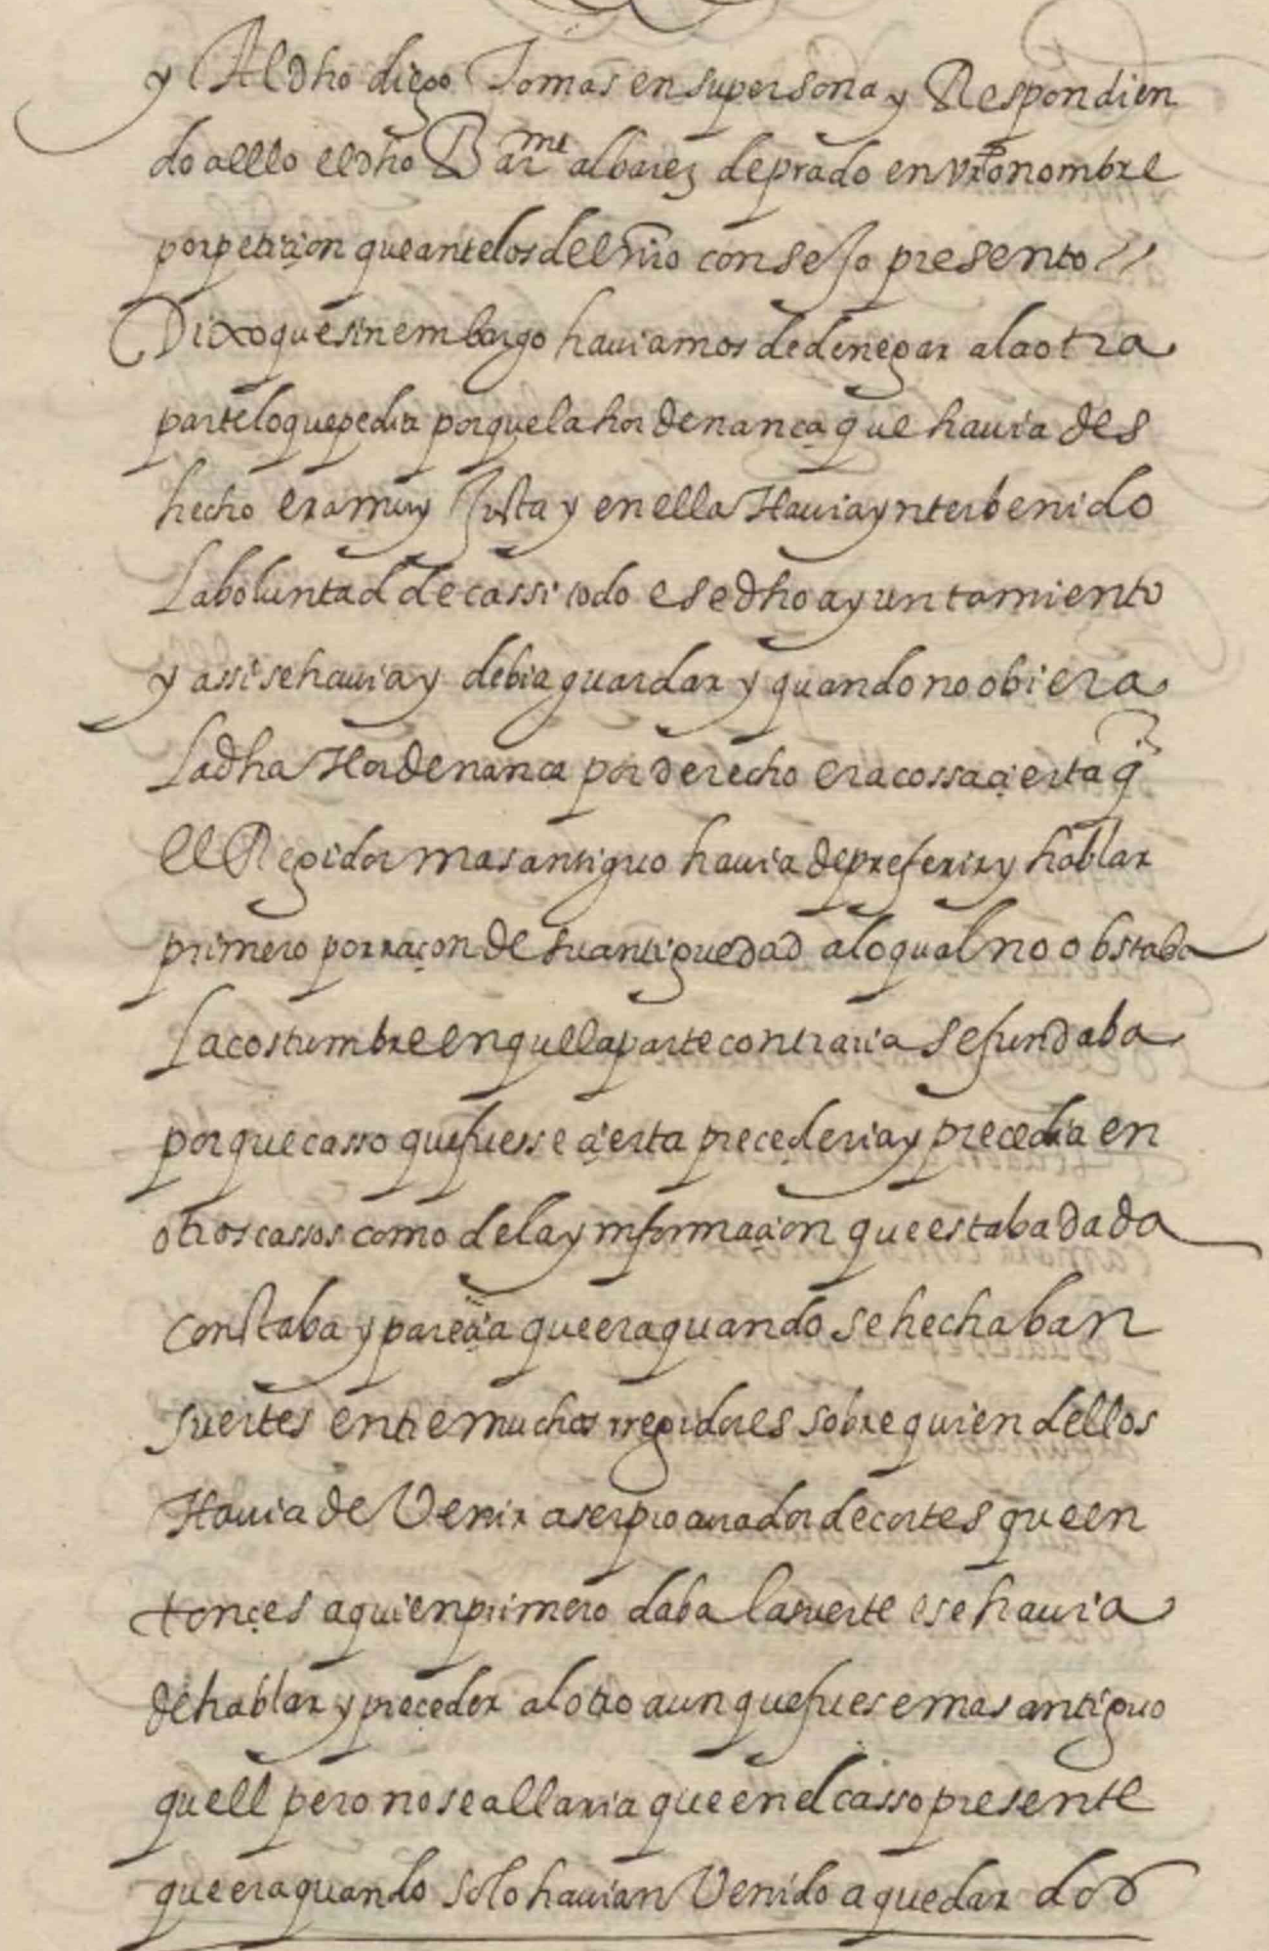 y Al dho diego Tomas en su persona y Respondien
do a ello el dho Barme albarez de prado en vro nombre
por petiçion que ante los del nro consejo presento //
Dixo que sin embargo haviamos de denegar a la otra
parte lo que pedia porque la hordenança que havia des
hecho era muy Justa y en ella Havia ynterbenido
La boluntad de cassi todo ese dho ayuntamiento
y assi se havia y debia guardar y quando no obiera
La dha Hordenança por derecho era cossa çierta q
el Regidor mas antiguo havia de preferir y hablar
primero por raçon de su antiguedad a lo qual no obstaba
La costumbre en quella parte contraria se fundaba
porque casso que fuesse çierta preçederia y precedia en
otros cassos como de la ynformaçion que estaba dada
constaba y pareçia que era quando se hechaban
suertes entre muchos rregidores sobre quien dellos
Havia de Venir a ser procurador de cortes que en
tonçes a quien primero daba la suerte ese havia
de hablar y preçeder al otro aunque fuese mas antiguo
quell pero no se allaria que en el casso presente
que era quando solo havian Venido a quedar dos